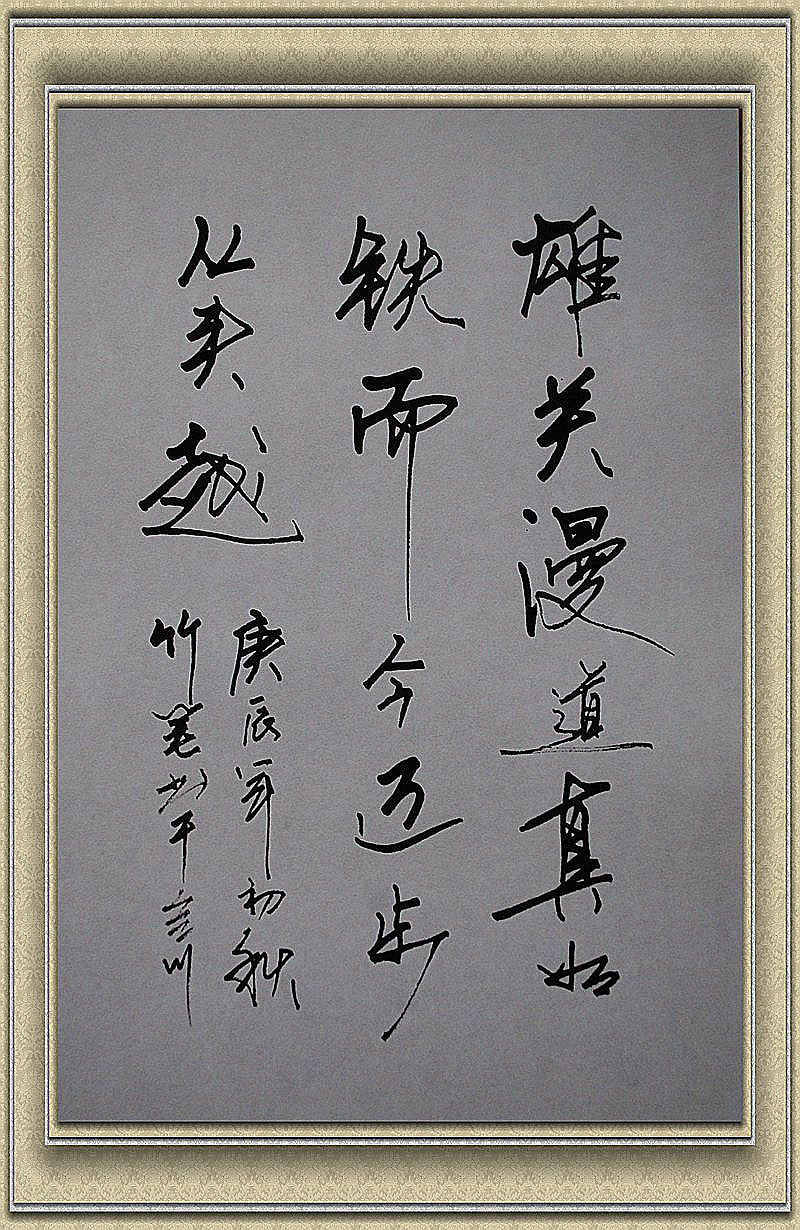 雄关漫道真如
铁而今迈步
从头越
庚辰年初秋
竹笔书于川